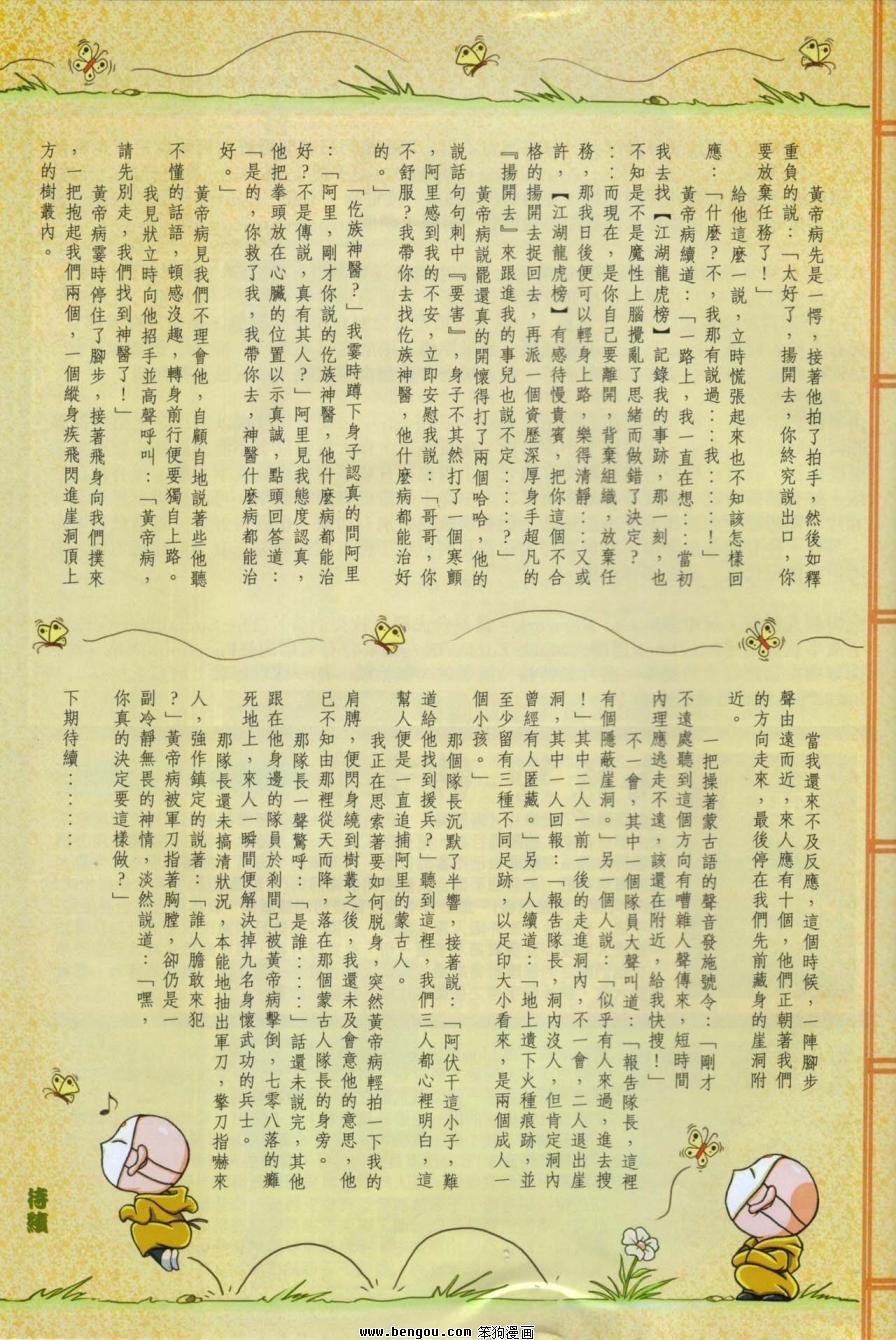 黃帝病先是一愕，接著他拍了拍手，然後如釋
重負的說：「太好了，揚開去，你終究說出口，你
要放棄任務了！」
給他這麼一說，立時慌張起來也不知該怎樣回
應：「什麼？不，我那有說過：：我：：：：！」
黃帝病續道：「一路上，我一直在想：：當初
我去找【江湖龍虎榜】記錄我的事跡，那一刻，也
不知是不是魔性上腦攪亂了思緒而做錯了決定？
：：而現在，是你自己要離開，背棄組織，放棄任
務，那我日後便可以輕身上路，樂得清靜：：又或
許，【江湖龍虎榜】有感待慢貴賓，把你這個不合
格的揚開去捉回去，再派一個資歷深厚身手超凡的
『揚開去』來跟進我的事兒也說不定：：：：？」
黃帝病說罷還真的開懷得打了兩個哈哈，他的
說話句句刺中『要害』，身子不其然打了一個寒顫
，阿里感到我的不安，立即安慰我說：「哥哥，你
不舒服？我帶你去找仡族神醫，他什麼病都能治好
的。」
「仡族神醫？」我霎時蹲下身子認真的問阿里
：「阿里，剛才你說的仡族神醫，他什麼病都能治
好？不是傳說，真有其人？」阿里見我態度認真，
他把拳頭放在心臟的位置以示真誠，點頭回答道：
「是的，你救了我，我帶你去，神醫什麼病都能治
好。」
黃帝病見我們不理會他，自顧自地說著些他聽
不懂的話語，頓感沒趣，轉身前行便要獨自上路。
我見狀立時向他招手並高聲呼叫：「黃帝病，
請先別走，我們找到神醫了！」
黃帝病霎時停住了腳步，接著飛身向我們撲來
，一把抱起我們兩個，一個縱身疾飛閃進崖洞頂上
方的樹叢內。
當我還來不及反應，這個時候，一陣腳步
聲由遠而近，來人應有十個，他們正朝著我們
的方向走來，最後停在我們先前藏身的崖洞附
近。
一把操著蒙古語的聲音發施號令：「剛才
不遠處聽到這個方向有嘈雜人聲傳來，短時間
內理應逃走不遠，該還在附近，給我快搜！」
不一會，其中一個隊員大聲叫道：「報告隊長，這裡
有個隱蔽崖洞。」另一個人說：「似乎有人來過，進去搜
！」其中二人一前一後的走進洞內，不一會，二人退出崖
洞，其中一人回報：「報告隊長，洞內沒人，但肯定洞內
曾經有人匿藏。」另一人續道：「地上遺下火種痕跡，並
至少留有三種不同足跡，以足印大小看來，是兩個成人一
個小孩。」
那個隊長沉默了半響，接著說：「阿伏干這小子，難
道給他找到援兵？」聽到這裡，我們三人都心裡明白，這
幫人便是一直追捕阿里的蒙古人。
我正在思索著要如何脫身，突然黃帝病輕拍一下我的
肩膊，便閃身繞到樹叢之後，我還未及會意他的意思，他
已不知由那裡從天而降，落在那個蒙古人隊長的身旁。
那隊長一聲驚呼：「是誰：：：：」話還未說完，其他
跟在他身邊的隊員於剎間已被黃帝病擊倒，七零八落的癱
死地上，來人一瞬間便解決掉九名身懷武功的兵士。
那隊長還未搞清狀況，本能地抽出軍刀，擎刀指嚇來
人，強作鎮定的說著：「誰人膽敢來犯
？」黃帝病被軍刀指著胸膛，卻仍是一
副冷靜無畏的神情，淡然說道：「嘿，
你真的決定要這樣做？」
下期待續：：：：：：
待續
www.bengou.com 笨狗漫画